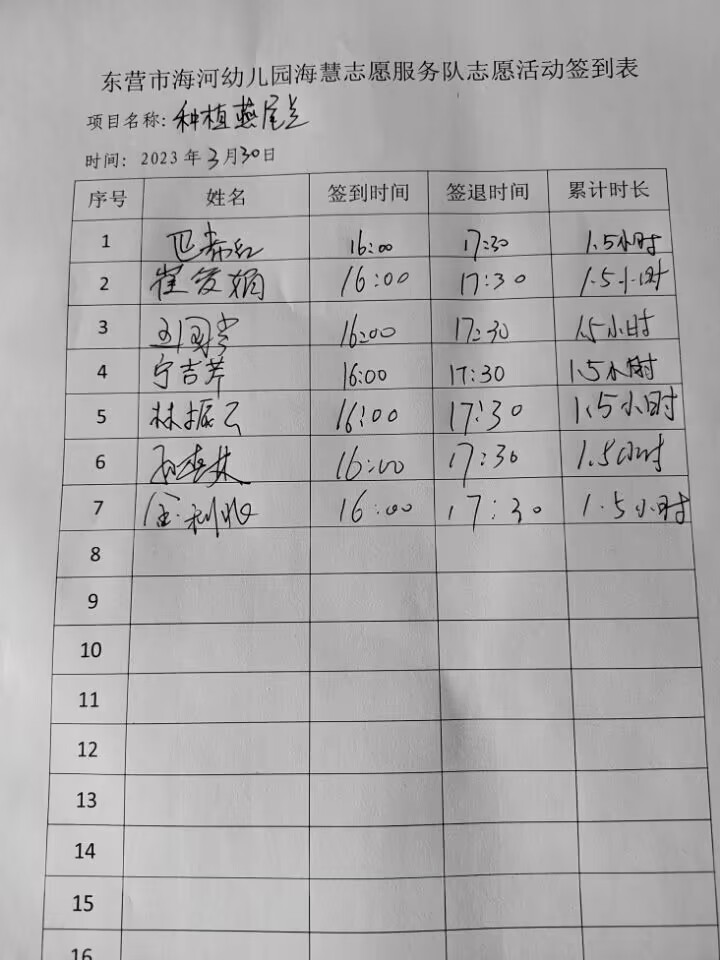 东营市海河幼儿园海慧志愿服务队志愿活动签到表
项目名称：种植燕尾兰
时间：2023年3月30日
序号 姓名 签到时间 签退时间 累计时长
1 16:00 17:30 1.5小时
2 崔爱娟 16:00 17:30 1.5小时
3 16:00 17:30 1.5小时
4 宁吉芹 16:00 17:30 1.5小时
5 林振云 16:00 17:30 1.5小时
6 16:00 17:30 1.5小时
7 16:00 17:30 1.5小时
8
9
10
11
12
13
14
15
16